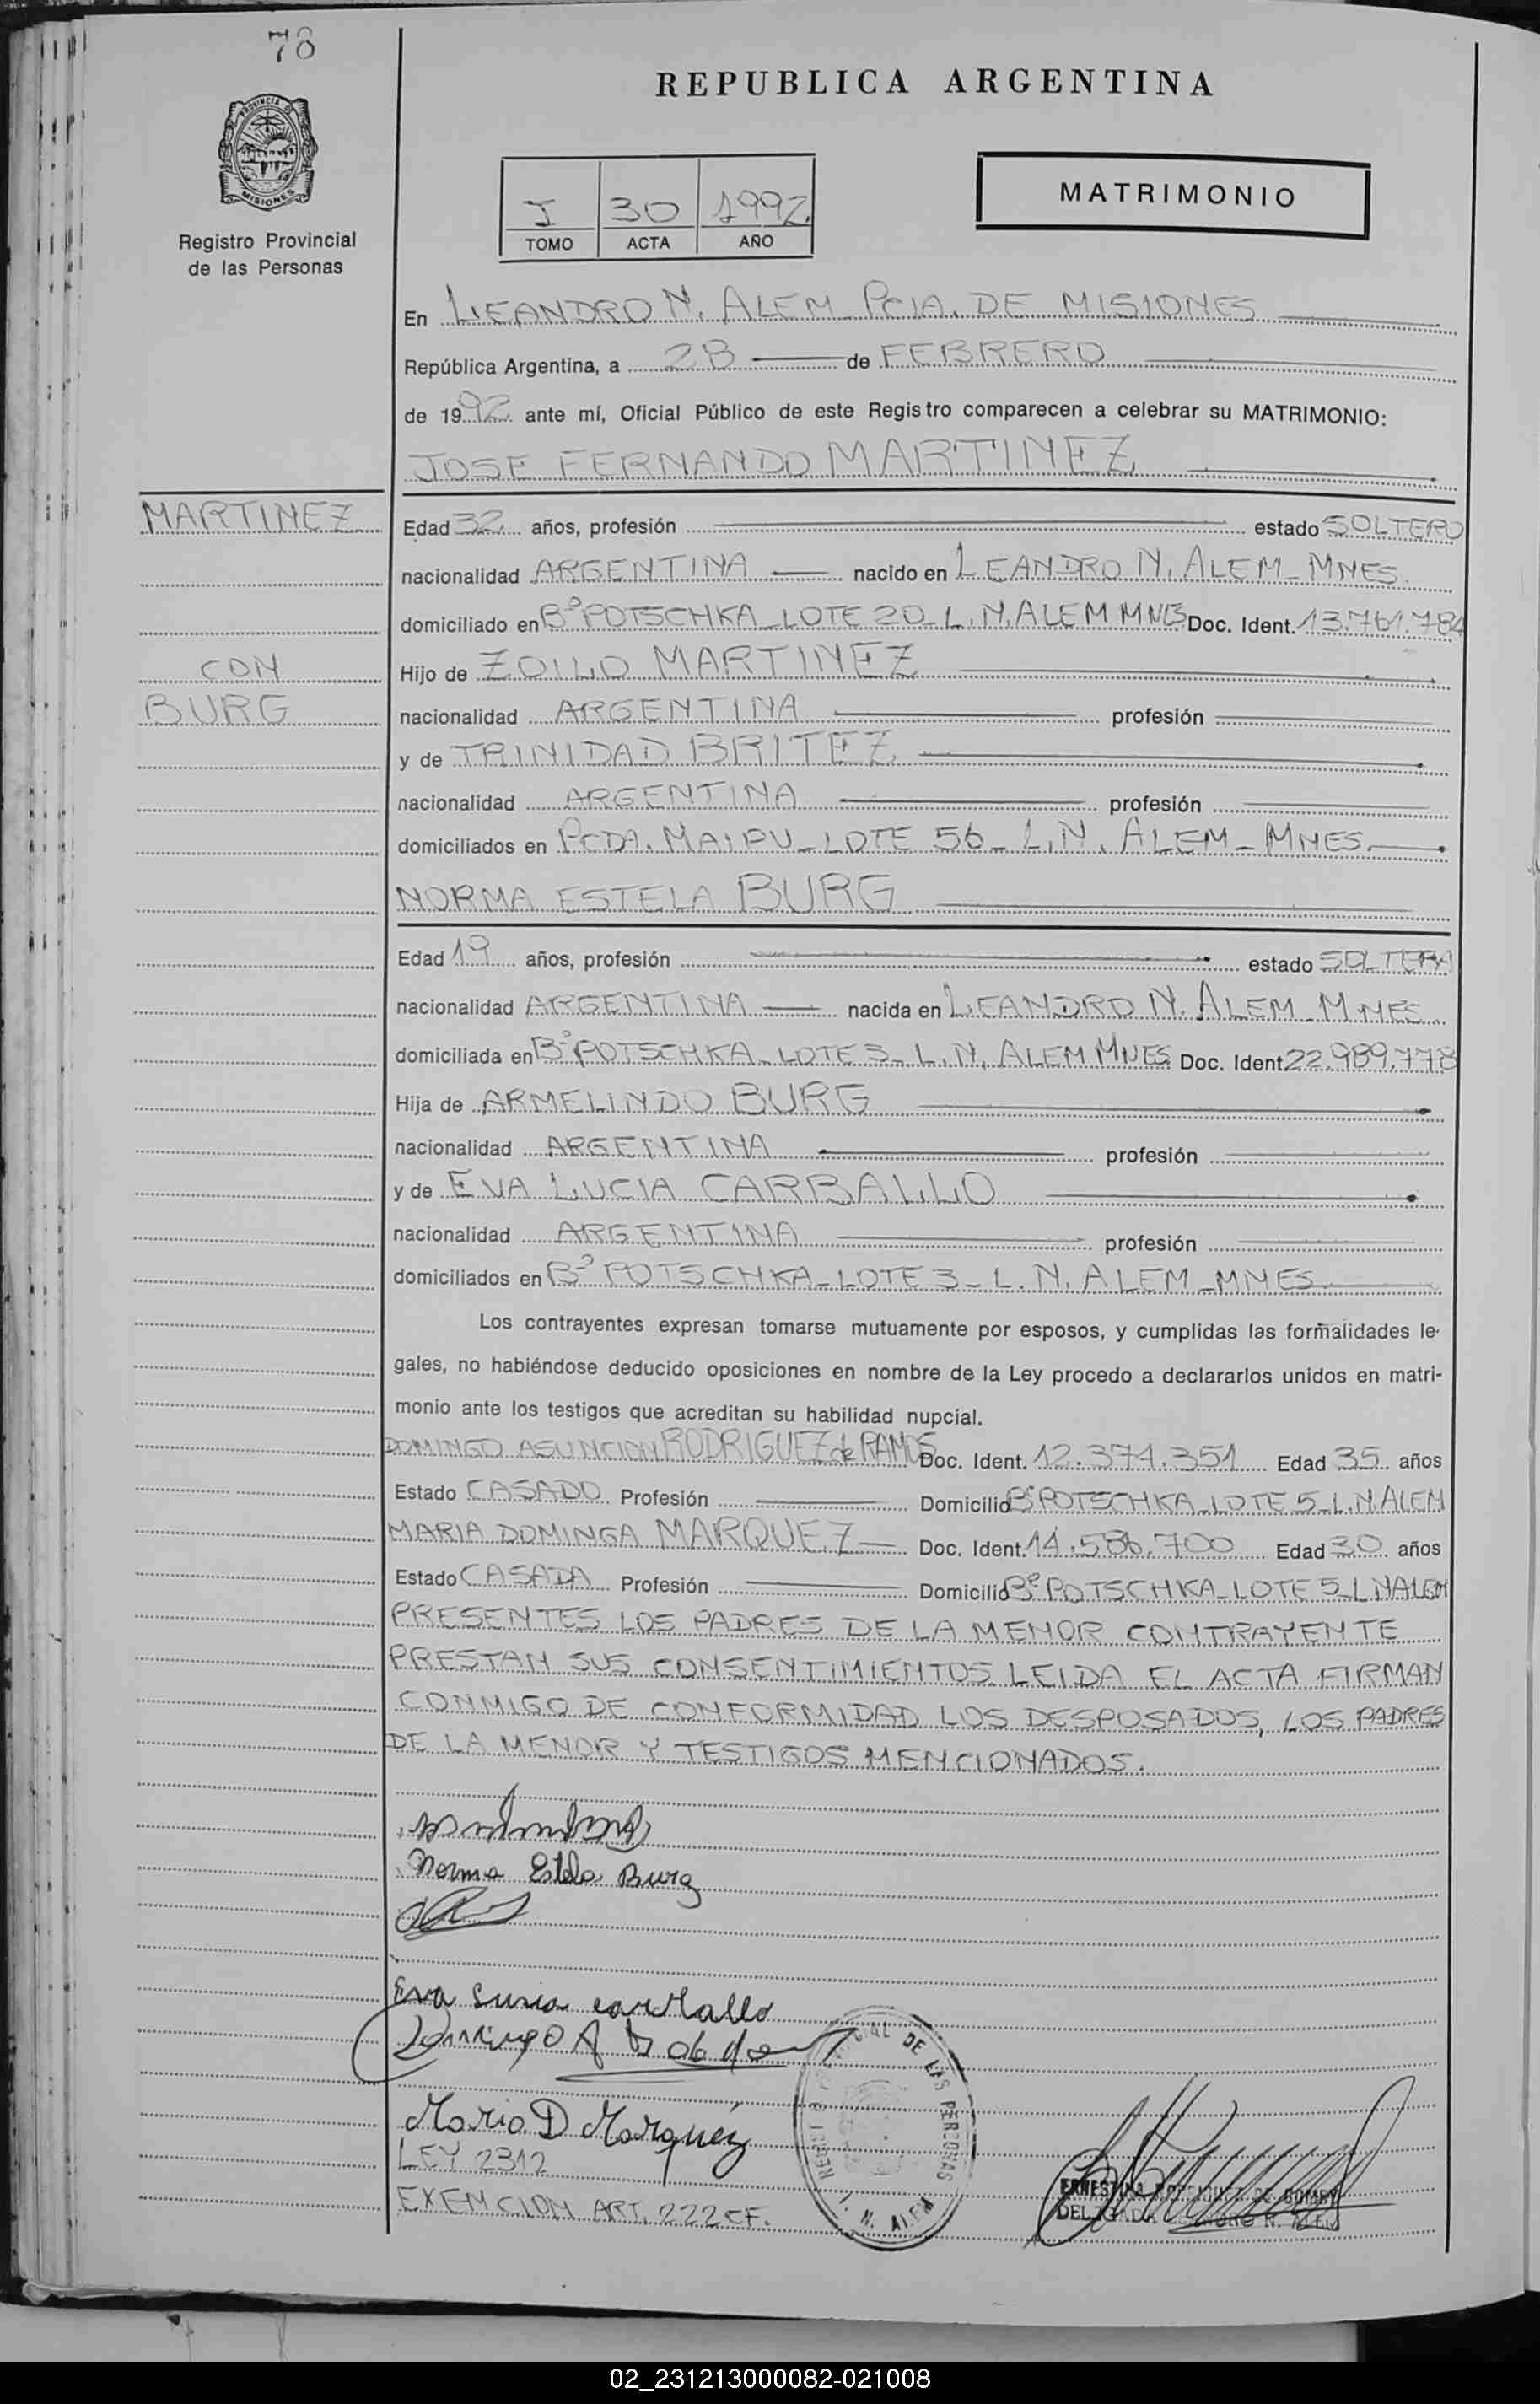 78
PROVINCIA DE
MISIONES
Registro Provincial
de las Personas
REPUBLICA ARGENTINA
I 30 1992
TOMO ACTA AÑO
MATRIMONIO
En LEANDRO N. ALEM PCIA. DE MISIONES
República Argentina, a 28 de FEBRERO
de 1992 ante mí, Oficial Público de este Registro comparecen a celebrar su MATRIMONIO:
JOSE FERNANDO MARTINEZ
MARTINEZ
Edad 32 años, profesión estado SOLTERO
nacionalidad ARGENTINA nacido en LEANDRO N. ALEM - MNES.
domiciliado en Bº POTSCHKA - LOTE 20 - L.N. ALEM MNES Doc. Ident. 13.761.784
CON
Hijo de ZOILO MARTINEZ
BURG
nacionalidad ARGENTINA profesión
y de TRINIDAD BRITEZ
nacionalidad ARGENTINA profesión
domiciliados en PCDA. MAIPU - LOTE 56 - L.N. ALEM - MNES.
NORMA ESTELA BURG
Edad 19 años, profesión estado SOLTERA
nacionalidad ARGENTINA nacida en LEANDRO N. ALEM - MNES.
domiciliada en Bº POTSCHKA - LOTE 3 - L.N. ALEM MNES Doc. Ident. 22.989.778
Hija de ARMELINDO BURG
nacionalidad ARGENTINA profesión
y de EVA LUCIA CARBALLO
nacionalidad ARGENTINA profesión
domiciliados en Bº POTSCHKA - LOTE 3 - L.N. ALEM - MNES.
Los contrayentes expresan tomarse mutuamente por esposos, y cumplidas las formalidades le-
gales, no habiéndose deducido oposiciones en nombre de la Ley procedo a declararlos unidos en matri-
monio ante los testigos que acreditan su habilidad nupcial.
DOMINGO ASUNCION RODRIGUEZ de RAMOS Doc. Ident. 12.371.351 Edad 35 años
Estado CASADO Profesión Domicilio Bº POTSCHKA - LOTE 5 - L.N. ALEM
MARIA DOMINGA MARQUEZ Doc. Ident. 14.586.700 Edad 30 años
Estado CASADA Profesión Domicilio Bº POTSCHKA - LOTE 5 - L.N ALEM
PRESENTES LOS PADRES DE LA MENOR CONTRAYENTE
PRESTAN SUS CONSENTIMIENTOS LEIDA EL ACTA FIRMAN
CONMIGO DE CONFORMIDAD LOS DESPOSADOS, LOS PADRES
DE LA MENOR Y TESTIGOS MENCIONADOS.
Norma Estela Burg
Eva Lucia carballo
Domingo A
Maria D Marquéz
LEY 2312
EXENCION ART. 222 CF.
DE LAS PERSONAS
L. N. ALEM
DELEGADA
02_231213000082-021008